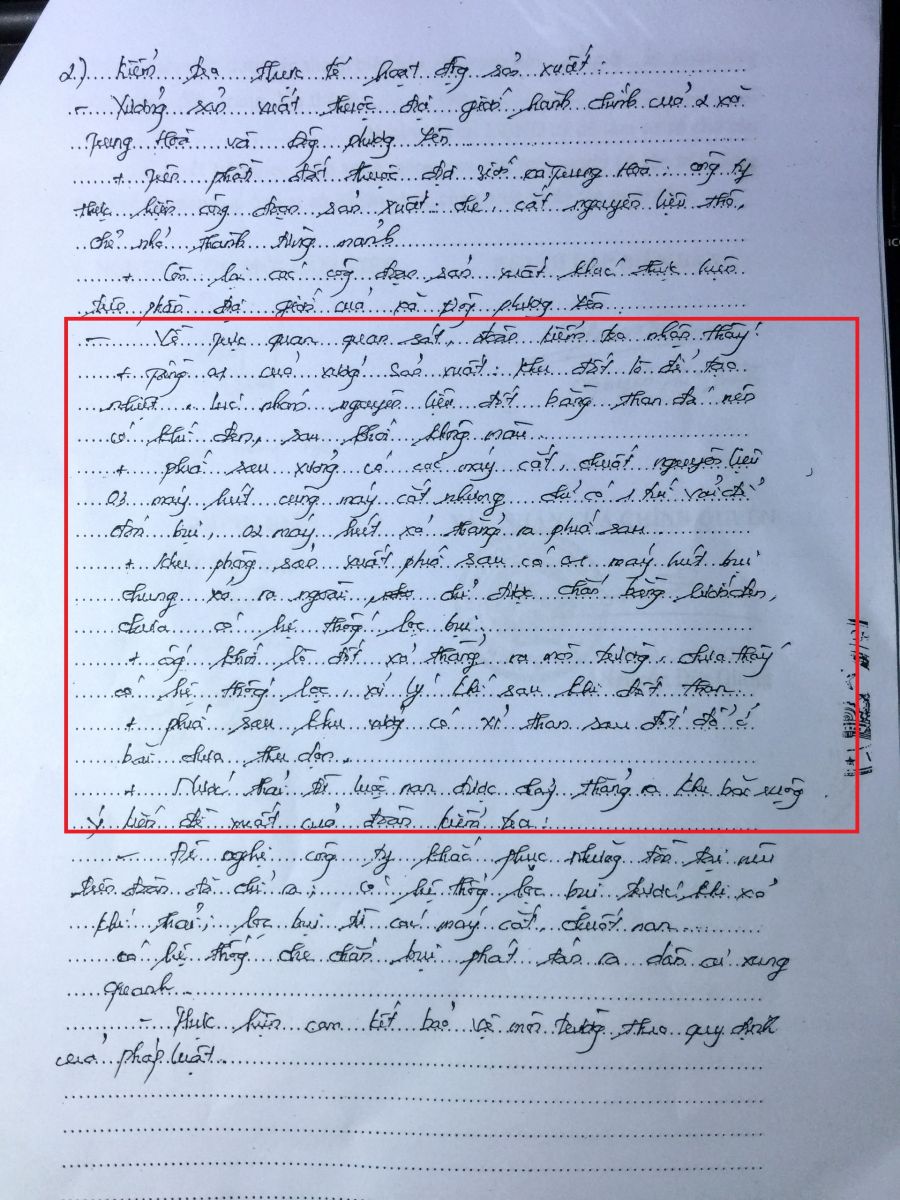 2.) Kiểm tra thực tế hoạt động sản xuất:
- Xưởng sản xuất thuộc địa giới hành chính của 2 xã
Trung Hoà và Đông Phương Yên
+ Trên phần đất thuộc địa giới xã Trung Hoà: công ty
thực hiện công đoạn sản xuất: chẻ, cắt nguyên liệu thô,
chẻ nhỏ thành từng mảnh
+ Còn lại các công đoạn sản xuất khác thực hiện
trên phần địa giới của xã Đông Phương Yên
- Về trực quan quan sát, đoàn kiểm tra nhận thấy:
+ Tầng 01 của xưởng sản xuất: khu đốt lò để tạo
nhiệt. Lúc nhóm nguyên liệu đốt bằng than đá nên
có khí đen, sau khói không màu
+ Phía sau xưởng có các máy cắt, chuốt nguyên liệu
03 máy hút cùng máy cắt nhưng chỉ có 1 túi vải để
đón bụi, 02 máy hút xả thẳng ra phía sau
+ Khu phòng sản xuất phía sau có 01 máy hút bụi
chung xả ra ngoài chỉ được chắn bằng lưới đen,
chưa có hệ thống lọc bụi;
+ Ống khói lò đốt xả thẳng ra môi trường, chưa thấy
có hệ thống lọc, xử lý khí sau khi đốt than
+ Phía sau khu xưởng có xỉ than sau đốt đổ ở
bãi chưa thu dọn.
+ Nước thải từ luộc nan được chảy thẳng ra khu bãi xưởng
Ý kiến đề xuất của đoàn kiểm tra:
- Đề nghị công ty khắc phục những tồn tại nêu
trên đoàn đã chỉ ra; có hệ thống lọc bụi trước khi xả
khí thải; lọc bụi từ các máy cắt, chuốt nan
có hệ thống che chắn bụi phát tán ra dân cư xung
quanh
- Thực hiện cam kết bảo vệ môi trường theo quy định
của pháp luật